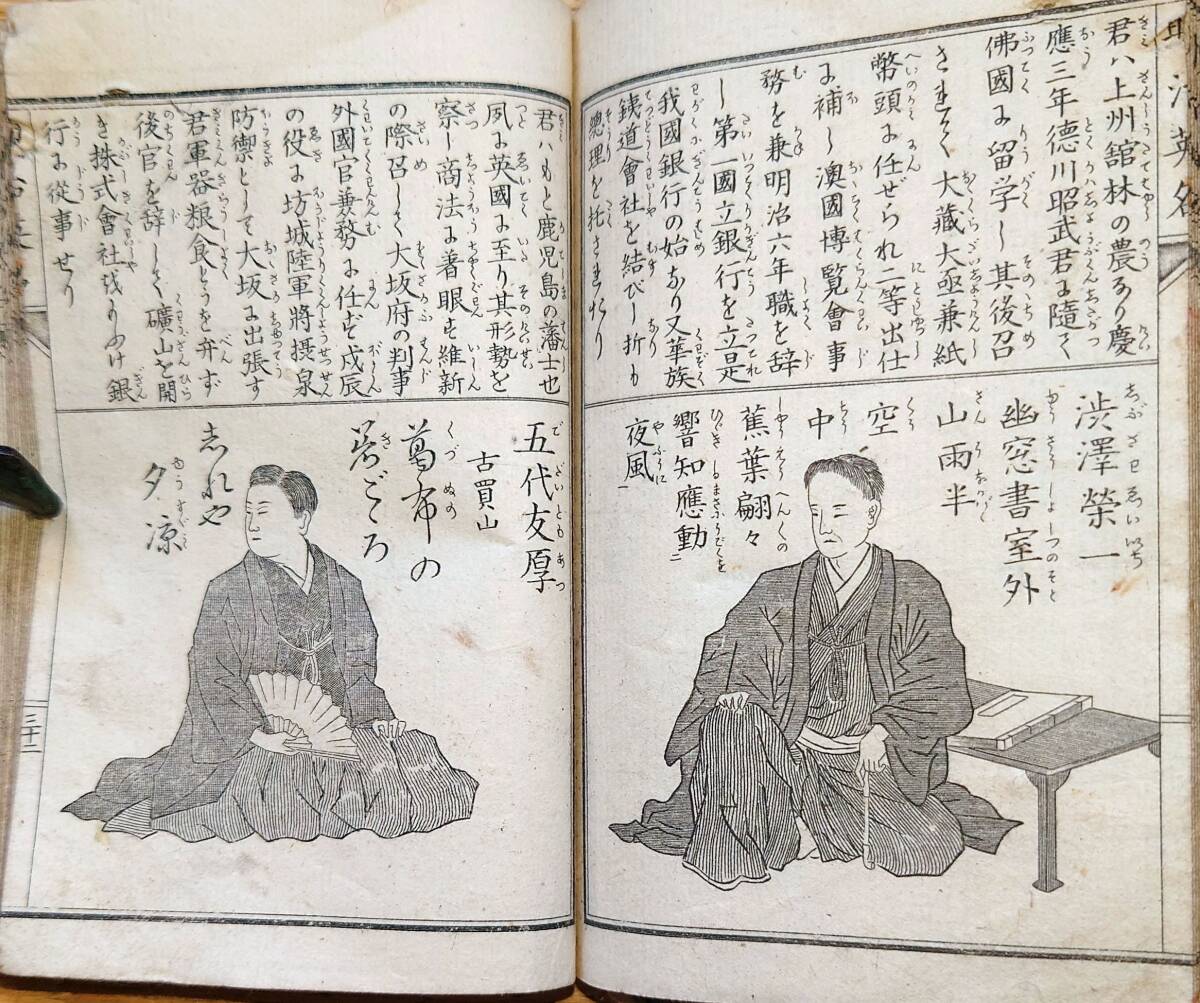 君ハ上州舘林の農なり慶
應三年徳川昭武君に隨て
佛國に留学し其後召
されて大藏大亟兼紙
幣頭に任ぜられ二等出仕
に補し澳國博覧會事
務を兼明治六年職を辞
し第一國立銀行を立是
我國銀行の始なり又華族
銕道會社を結び折も
總理を托されたり
渋澤榮一
幽窓書室外
山雨半
空
中
蕉葉翩々
響知應動二
夜風一
君ハもと鹿児島の藩士也
夙に英國に至り其形勢を
察し商法に着眼す維新
の際召して大坂府の判事
外國官兼務に任ず戊辰
の役に坊城陸軍將摂泉
防禦として大坂に出張す
君軍器粮食とうを弁ず
後官を辞して礦山を開
き株式會社をもふけ銀
行に從事せり
五代友厚
古買山
葛布の
着ごころ
志れや
夕涼
三十二